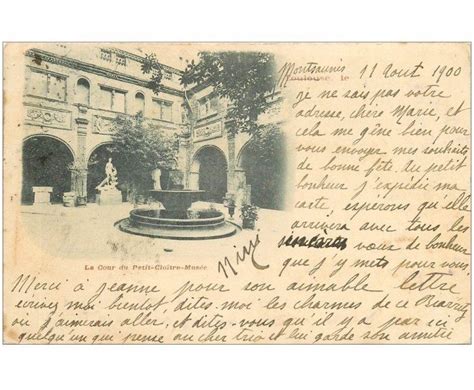 Toulouse, le
Montsaunès 11 Aout 1900
je ne sais pas votre
adresse, chère Marie, et
cela me gêne bien pour
vous envoyer mes souhaits
de bonne fête. du petit
bonheur j'expédie ma
carte, esperons qu'elle
arrivera avec tous les
vœux de bonheur
que j'y mets pour vous
La Cour du Petit-Cloître-Musée
Merci à jeanne pour son aimable lettre
écrivez moi bientot, dites-moi les charmes de ce Biarritz
où j'aimerais aller, et dites-vous qu'il y a par ici
quelqu'un qui pense au cher trio et lui garde son amitié